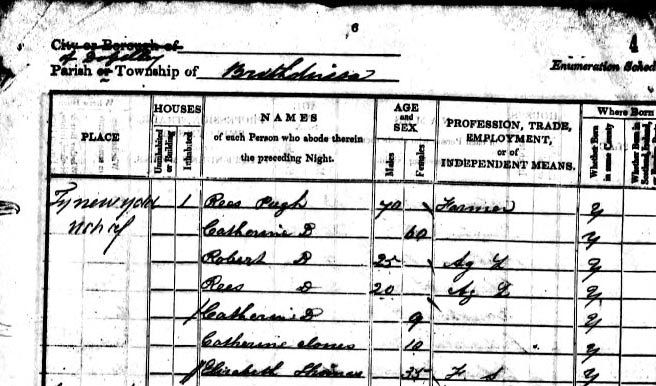 6
4
City or Borough of
of Dolgelley
Parish or Township of Brithdir
Enumeration Sched
PLACE
HOUSES
Uninhabited or Building
Inhabited
NAMES
of each Person who abode therein
the preceding Night.
AGE
and
SEX
Males
Females
PROFESSION, TRADE,
EMPLOYMENT,
or of
INDEPENDENT MEANS.
Where Born
Whether Born in same County
Whether Born in Scotland, Ireland,
Tynewydd 1 Rees Pugh 70 Farmer Y
Catherine D 60 Y
Robert D 25 Ag L Y
Rees D 20 Ag L Y
Catherine D 9 Y
Catherine Jones 10 Y
Elizabeth Thomas 35 F S Y